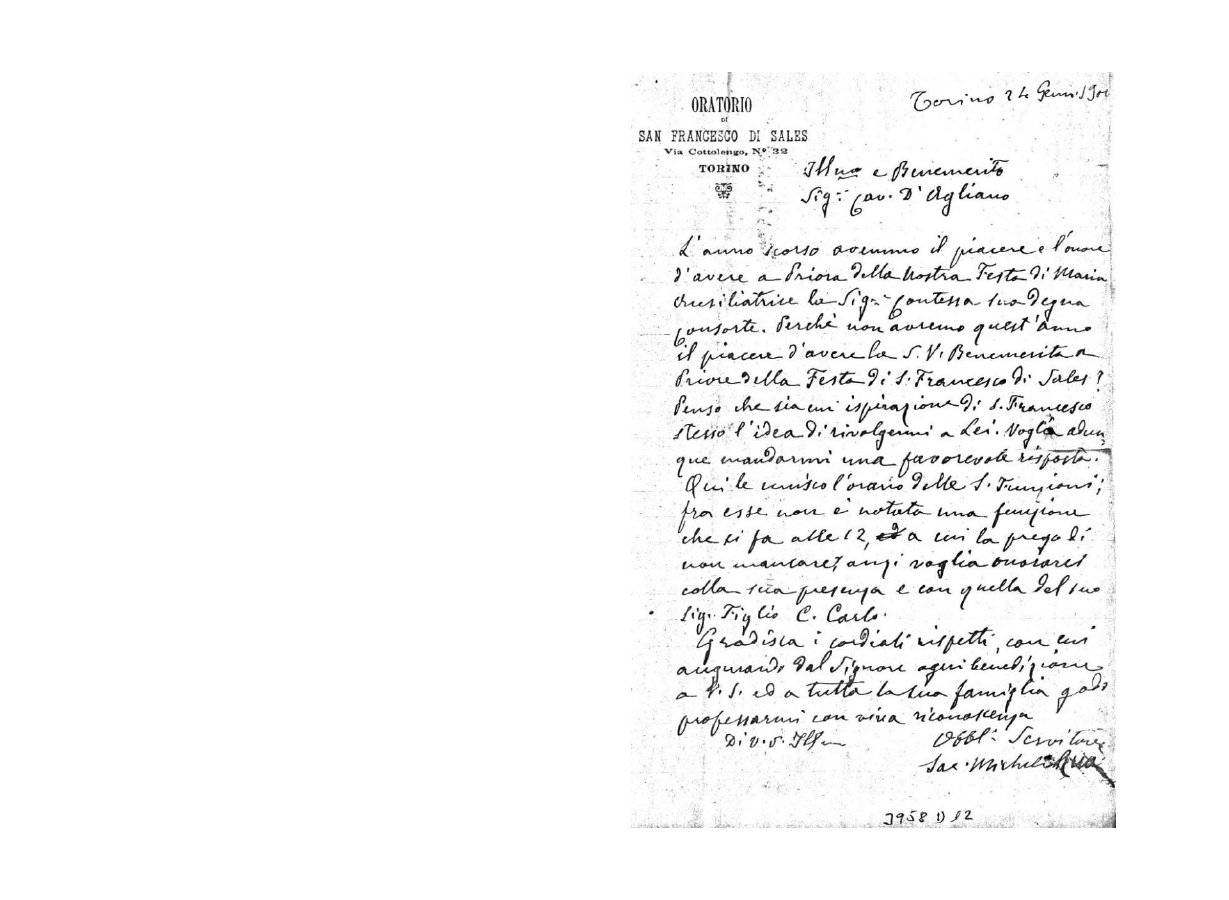 ORATORIO
DI
SAN FRANCESCO DI SALES
Via Cottolengo, N° 32
TORINO
Torino 24 Genn. 190
Ill.mo e Benemerito
Sig.r Cav. D'Agliano
L'anno scorso avemmo il piacere e l'onore
d'avere a Priora della Nostra Festa di Maria
Ausiliatrice la Sig.ra Contessa sua degna
Consorte. Perchè non avremo quest'anno
il piacere d'avere la S. V. Benemerita a
Priore della Festa di S. Francesco di Sales?
Penso che sia un ispirazione di S. Francesco
stesso l'idea di rivolgermi a Lei. Voglia adun
que mandarmi una favorevole risposta.
Qui le unisco l'orario delle S. Funzioni;
fra esse non è notata una funzione
che si fa alle 12, a cui la prego di
non mancare, anzi voglia onorarci
colla sua presenza e con quella del suo
Sig. Figlio C. Carlo.
Gradisca i cordiali rispetti, con cui
augurando dal Signore ogni benedizione
a V. S. ed a tutta la sua famiglia godo
professarmi con viva riconoscenza
Di V. S. Ill.ma
Obbl. Servitore
Sac. Michele Rua
3958 D 12